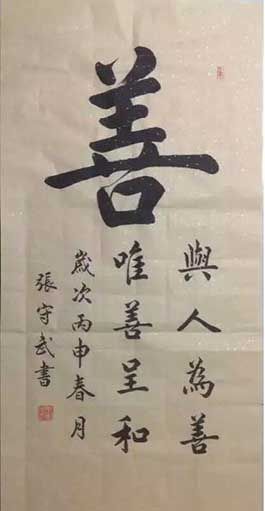 善
與人為善
唯善呈和
歲次丙申春月
張守武書